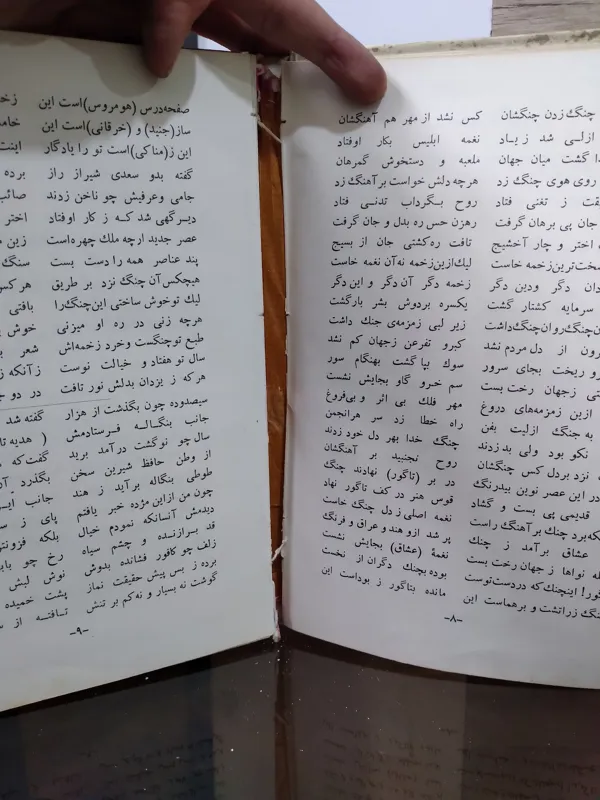 چنگ زدن چنگشان کس نشد از مهر هم آهنگشان
ازلی شد زیاد نغمه ابلیس بکار اوفتاد
گشت میان جهان ملعبه و دستخوش گمرهان
روی هوی چنگ زد هرچه دلش خواست بر آهنگ زد
ز تغنی فتاد روح بگرداب تدنی فتاد
جان پی برهان گرفت رهزن حس ره بدل و جان گرفت
اختر و چار آخشیج تافت ره‌کشتی جان از بسیج
زخمه خاست لیك ازین زخمه نه آن نغمه خاست
دگر ودین دگر زخمه دگر آن دگر و این دگر
سرمایه کشتار گشت یکسره بردوش بشر بارگشت
چنگ داشت زیر لبی زمزمه‌ی جنك داشت
از دل مردم نشد کبرو تفرعن زجهان کم نشد
ریخت بجای سرور سوك بپا گشت بهنگام سور
زجهان رخت بست سم خرو گاو بجایش نشست
ازین زمزمه‌های دروغ مهر فلك بی اثر و بی‌فروغ
به جنگ ازلیت بفن راه خطا زد سر هرانجمن
نکو بود ولی بد زدند چنگ خدا بهر دل خود زدند
نزد بردل کس چنگشان روح نجنبید بر آهنگشان
در این عصر نوین بیدرنگ در بر (تاگور) نهادند چنگ
قدیمی پی بست و گشاد قوس هنر در کف تاگور نهاد
برد چنك بر آهنگ راست نغمه اصلی ز دل چنگ خاست
عشاق برآمد ز چنك پر شد ازو هند و عراق و فرنگ
نواها ز جهان رخت بست نغمهٔ (عشاق) بجایش نشست
اینچنك که دردست‌توست بوده بچنك دگران از نخست
زراتشت و برهماست این مانده بتاگور ز بوداست این
-۸-
صفحه‌درس (هومروس)است این
ساز(جنید) و (خرقانی)است این
این ز(مناکی)است تو را یادگار
گفته بدو سعدی شیراز راز
جامی وعرفیش چو ناخن زدند
دیرگهی شد که ز کار اوفتاد
عصر جدید ارچه ملك چهره‌است
پند عناصر همه را دست بست
هیچکس آن چنگ نزد بر طریق
لیك توخوش ساختی این‌چنگ‌را
هرچه زنی در ره او میزنی
طبع توچنگست وخرد زخمه‌اش
سال تو هفتاد و خیالت نوست
هرکه ز یزدان بدلش نور تافت
سیصدوده چون بگذشت از هزار گفته شد
جانب بنگاله فرستادمش ( هدیه
سال‌چو نوگشت درآمد برید گفت‌که
از وطن حافظ شیرین سخن بگذرد
طوطی بنگاله برآید ز هند جانب
چون من ازاین مژده خبر یافتم پای ز
دیدمش آنسانکه نمودم خیال بلکه
قد برازنده و چشم سیاه رخ چو
زلف چو کافور فشانده بدوش نوش لبش
برده ز بس پیش حقیقت نماز پشت خمیده
گوشت نه بسیار و نه‌کم بر تنش تافته از
-۹-